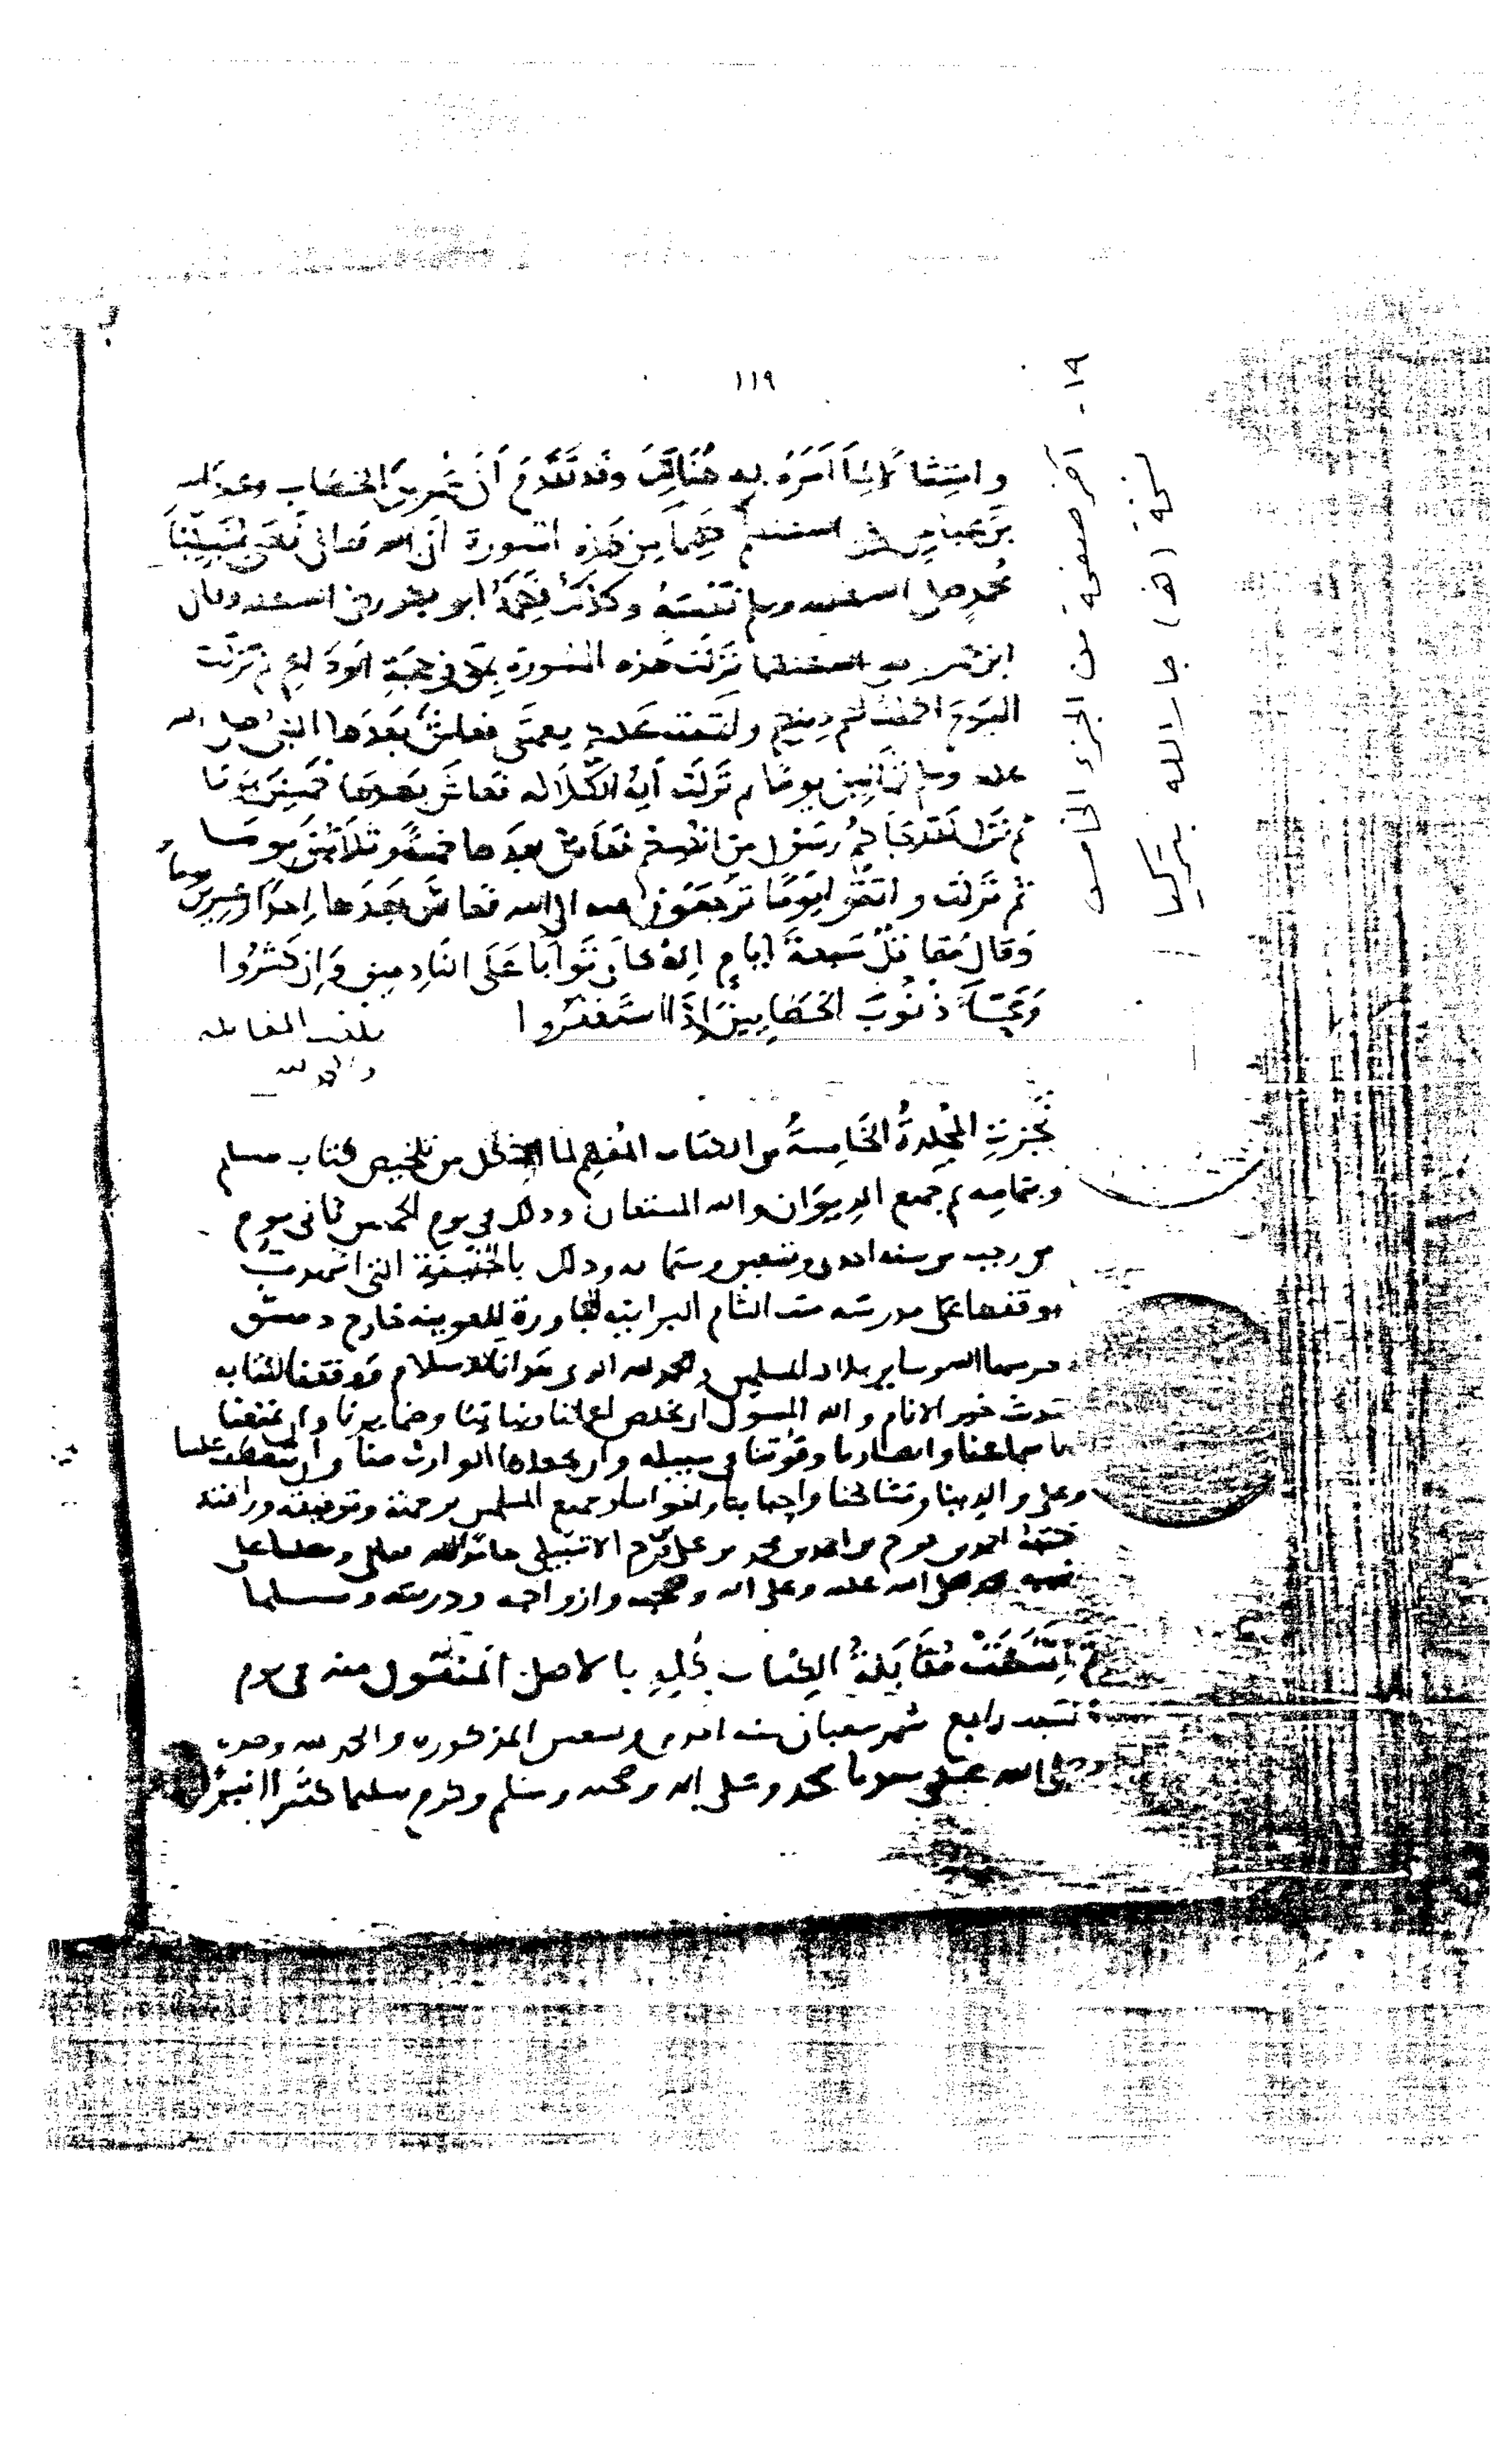 ١١٩
١٩ - آخر صفحة من الجزء الخامس
نسخة (هـ) جار الله بتركيا
وامتثالا لما أمره به هنالك وقد تقدم أن عمر بن الخطاب وعبد الله
بن عباس رضي الله عنهم فهما من هذه السورة أن الله تعالى نعى لنبينا
محمد صلى الله عليه وسلم نفسه وكذلك فهمها أبو بكر رضي الله عنه وقال
ابن عمر رضي الله عنهما نزلت هذه السورة بمنى في حجة الوداع ثم نزلت
اليوم أكملت لكم دينكم وأتممت عليكم نعمتي فعاش بعدها النبي صلى الله
عليه وسلم ثمانين يوما ثم نزلت آية الكلالة فعاش بعدها خمسين يوما
ثم نزل لقد جاءكم رسول من أنفسكم فعاش بعدها خمسة وثلاثين يوما
ثم نزلت واتقوا يوما ترجعون فيه الى الله فعاش بعدها احدا وعشرين يوما
وقال مقاتل سبعة أيام إنه كان توابا على النادمين وإن كثروا
ذنوب الخطايين إذا استغفروا
بلغت المقابلة
والحمد لله
نجزت المجلدة الخامسة من الكتاب المفهم لما أشكل من تلخيص كتاب مسلم
وبتمامه تم جميع الديوان والله المستعان وذلك في يوم الخميس ثاني يوم
من رجب من سنة احدى وتسعين وستمائة وذلك بالتي
بوقفها على مدرسة ست الشام البرانية المجاورة للعوينة خارج دمشق
حرسها الله وساير بلاد المسلمين والحمد لله الذي هدانا للاسلام ووفقنا لكتابة
حديث خير الانام والله المسول ان يخلص اعمالنا ونياتنا وضمايرنا وان يمتعنا
باسماعنا وابصارنا وقوتنا في سبيله وان يجعلها الوارث منا وان يتعطف علينا
وعلى والدينا ومشائخنا واحبابنا واخواننا وجميع المسلمين برحمته وتوفيقه ورأفته
كتبه احمد بن فرح من احمد بن محمد بن علي فرح الاشبيلي حامدا لله تعالى ومصليا على
نبيه محمد صلى الله عليه وعلى اله وصحبه وازواجه وذريته ومسلما
ثم مقابلة الكتاب كله بالاصل المنقول منه في يوم
رابع شهر شعبان سنة احدى وتسعين المذكورة والحمد لله وحده
وصلى الله على سيدنا محمد وعلى اله وصحبه وسلم وكرم تسليما كثيرا